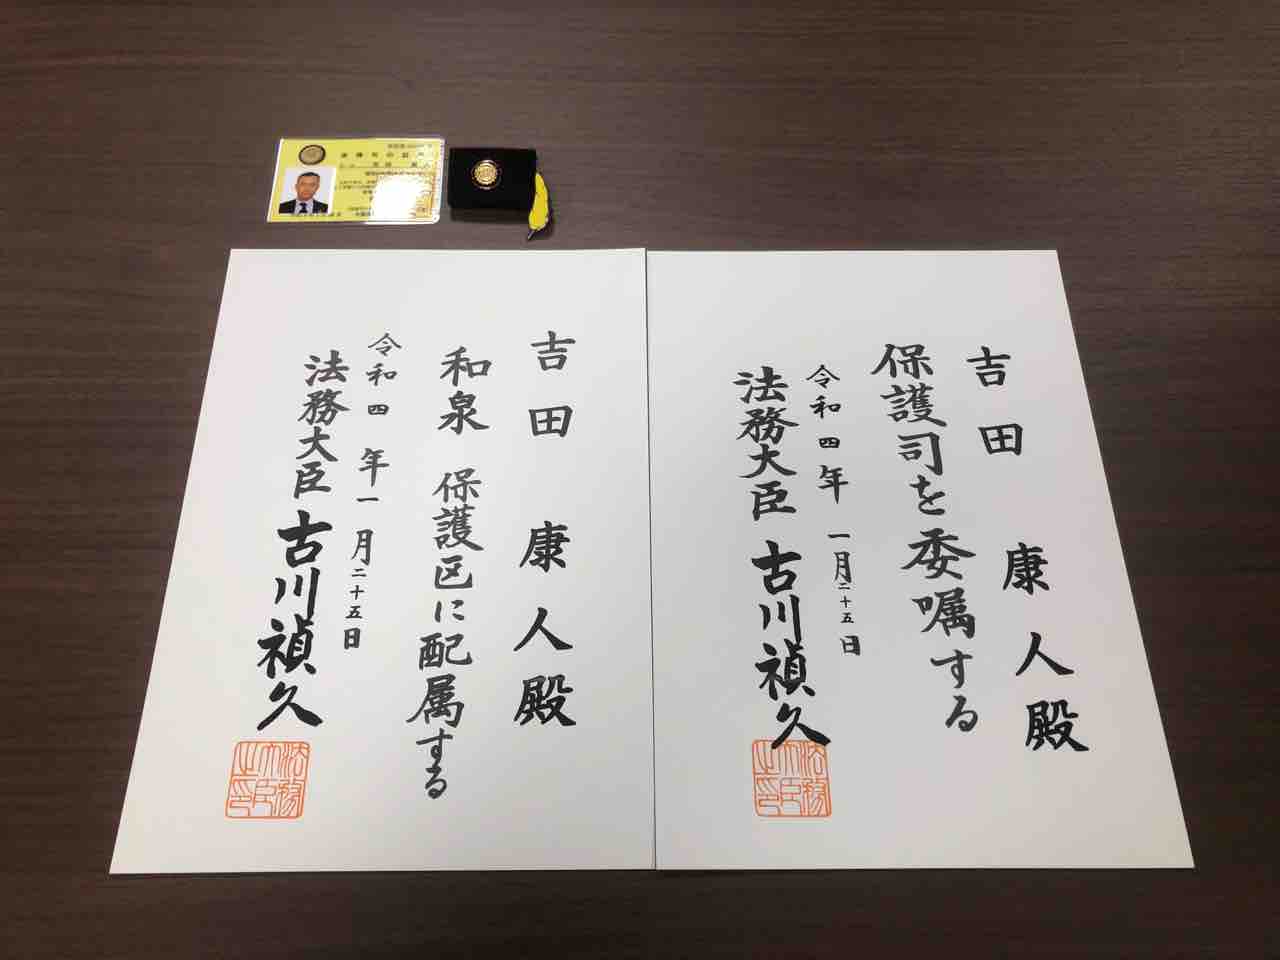 保護司の証
吉田 康人殿
保護司を委嘱する
令和四年一月二十五日
法務大臣 古川禎久
法務大臣之印
吉田 康人殿
和泉 保護区に配属する
令和四年一月二十五日
法務大臣 古川禎久
法務大臣之印